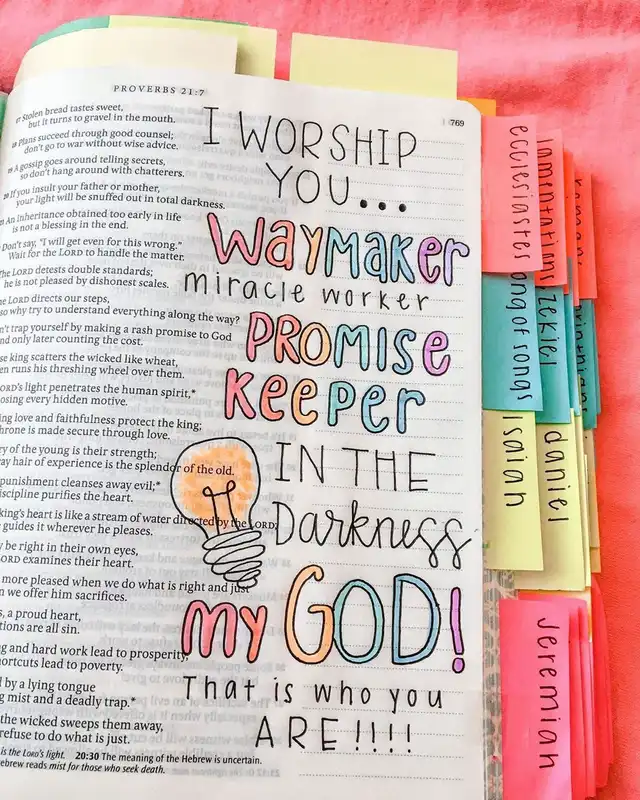 PROVERBS 21:7
769
17 Stolen bread tastes sweet,
but it turns to gravel in the mouth.
18 Plans succeed through good counsel;
don't go to war without wise advice.
19 A gossip goes around telling secrets,
so don't hang around with chatterers.
20 If you insult your father or mother,
your light will be snuffed out in total darkness.
An inheritance obtained too early in life
is not a blessing in the end.
Don't say, "I will get even for this wrong."
Wait for the LORD to handle the matter.
The LORD detests double standards;
he is not pleased by dishonest scales.
LORD directs our steps,
so why try to understand everything along the way?
trap yourself by making a rash promise to God
and only later counting the cost.
king scatters the wicked like wheat,
runs his threshing wheel over them.
LORD's light penetrates the human spirit,*
exposing every hidden motive.
love and faithfulness protect the king;
throne is made secure through love.
of the young is their strength;
hair of experience is the splendor of the old.
punishment cleanses away evil;*
discipline purifies the heart.
king's heart is like a stream of water directed by the LORD;
guides it wherever he pleases.
be right in their own eyes,
LORD examines their heart.
more pleased when we do what is right and just
we offer him sacrifices.
a proud heart,
actions are all sin.
and hard work lead to prosperity,
shortcuts lead to poverty.
by a lying tongue
mist and a deadly trap.*
the wicked sweeps them away,
refuse to do what is just.
is the LORD's light. 20:30 The meaning of the Hebrew is uncertain.
Hebrew reads mist for those who seek death.
I WORSHIP
YOU...
WAYMAKER
miracle worker
PROMISE
KEEPER
IN THE
Darkness
MY GOD!
That is who you
ARE!!!!
ecclesiastes
lamentations
song of songs
ezekiel
isaiah
daniel
Jeremiah